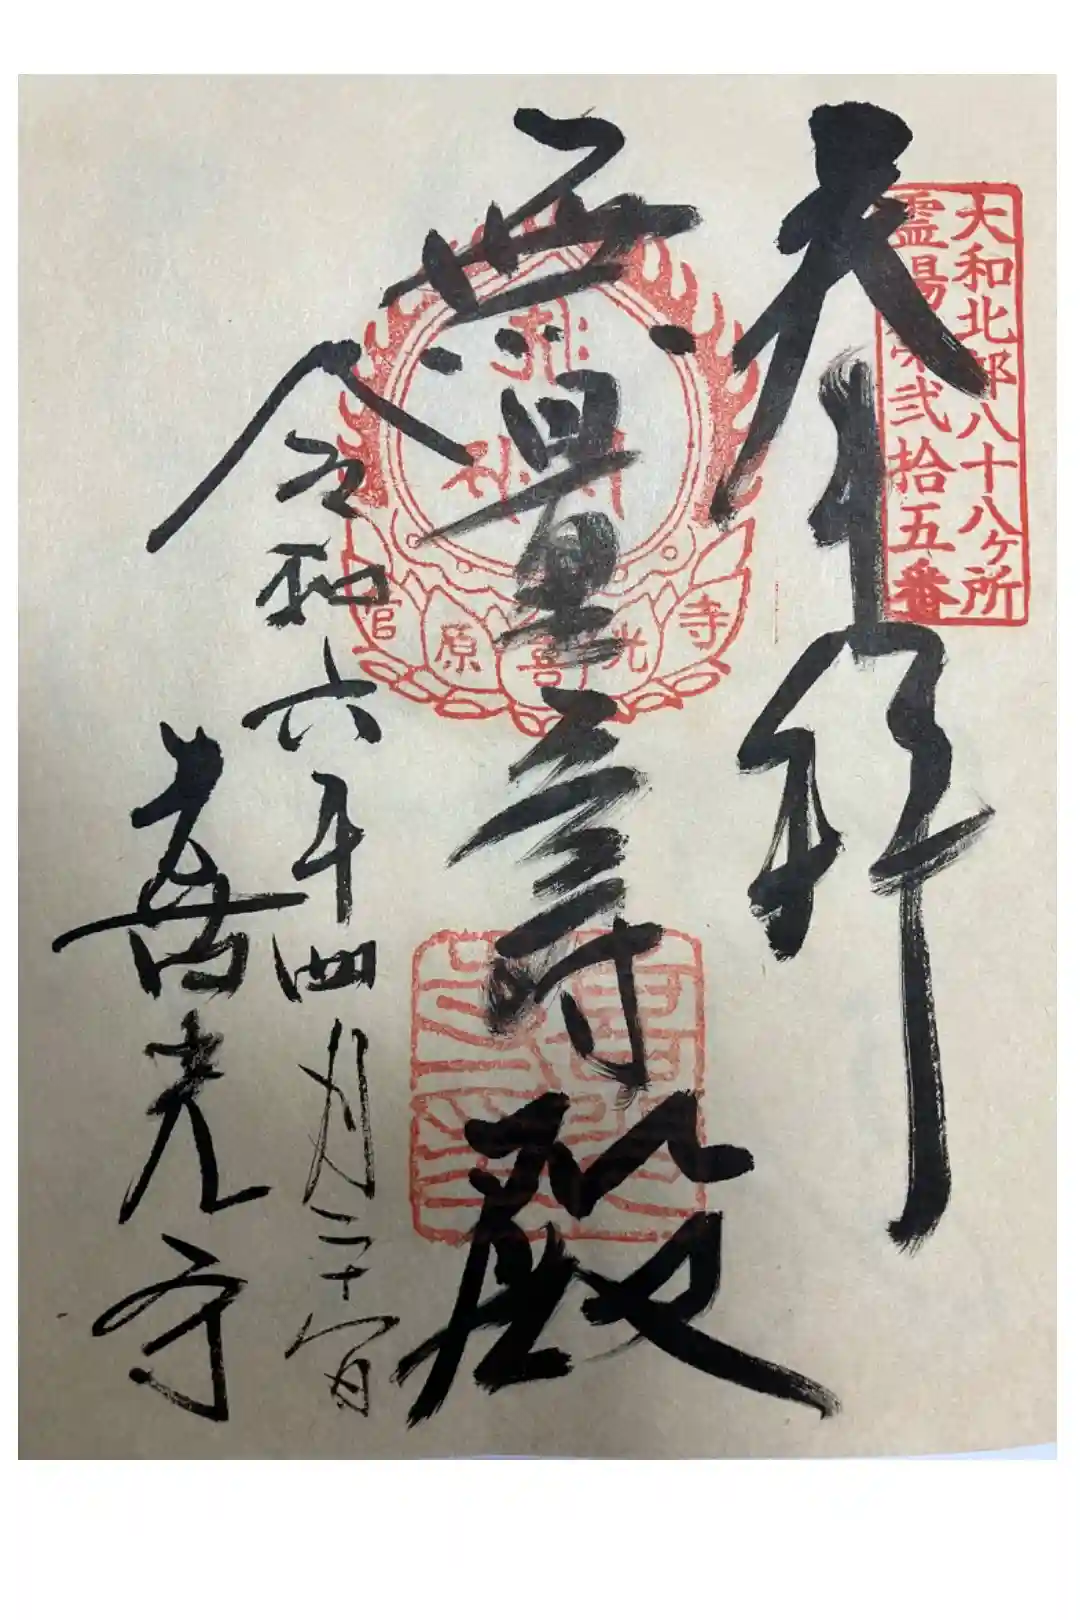 大和北部八十八ヶ所
霊場第弐拾五番
奉拝
無量寿殿
菅原喜光寺
令和六年四月二十六日
喜光寺